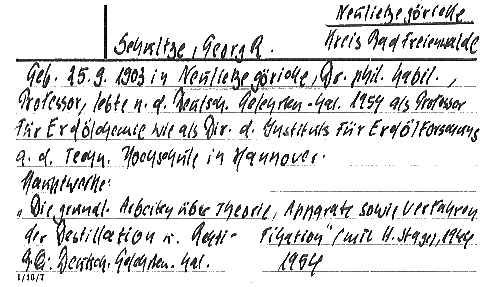 Neulietzegöricke
Schultze, Georg R. Kreis Bad Freienwalde
Geb. 25.9. 1903 in Neulietzegöricke, Dr. phil. habil.,
Professor, lebte n. d. Deutsch. Gelehrten-Kal. 1954 als Professor
für Erdölchemie wie als Dir. d. Instituts für Erdölforschung
a. d. Techn. Hochschule in Hannover.
Hauptwerke:
„Die grundl. Arbeiten über Theorie, Apparate sowie Verfahren
der Destillation u. Rekti- fikation" (mit H. Stage), 1944
Deutsch. Gelehrten. Kal. 1954
1/10/7